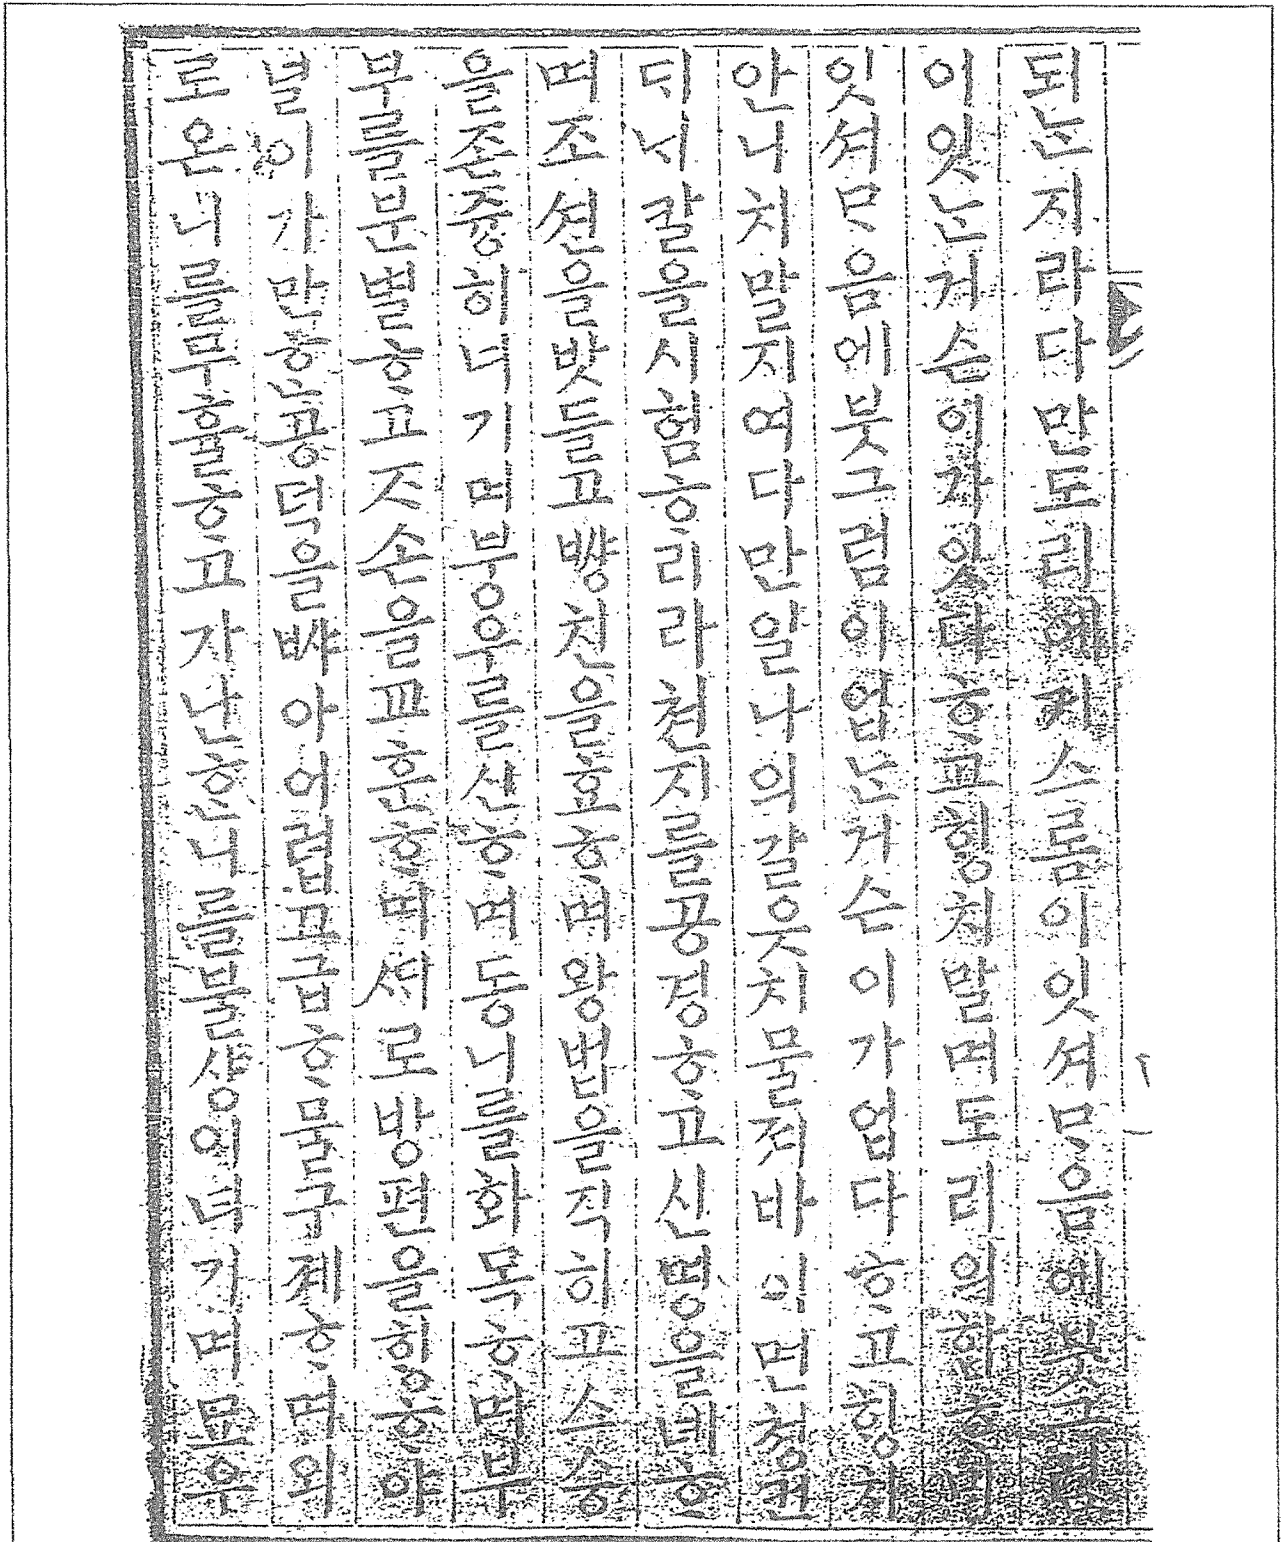 되ᄂᆞᆫ지라다만도리예거스롬이잇셔ᄆᆞ음에붓그럼
이잇ᄂᆞᆫ거슨이가잇다ᄒᆞ고ᄒᆡᆼ치말며도리의합ᄒᆞ미
잇셔ᄆᆞ음에붓그럼이업ᄂᆞᆫ거슨이가업다ᄒᆞ고ᄒᆡᆼ치
안니치말지여다만일나의갈ᄋᆞᆺ치물젼바의면쳥컨
ᄃᆡ니칼을시험ᄒᆞ리라텬지를공경ᄒᆞ고신명을녜ᄒᆞ
며조션을밧들고뺭친을효ᄒᆞ며왕법을직히고스승
을존즁히녀기며붕우를신ᄒᆞ며동니를화목ᄒᆞ며부
부를분별ᄒᆞ고ᄌᆞ손을교훈ᄒᆞ며ᄯᆡ로방편을ᄒᆡᆼᄒᆞ야
널이가만ᄒᆞᆫ공덕을ᄡᅡ아어렵고급ᄒᆞᄆᆞᆯ구졔ᄒᆞ며외
로온니를무휼ᄒᆞ고가난ᄒᆞᆫ니를불샹이녀기며묘우